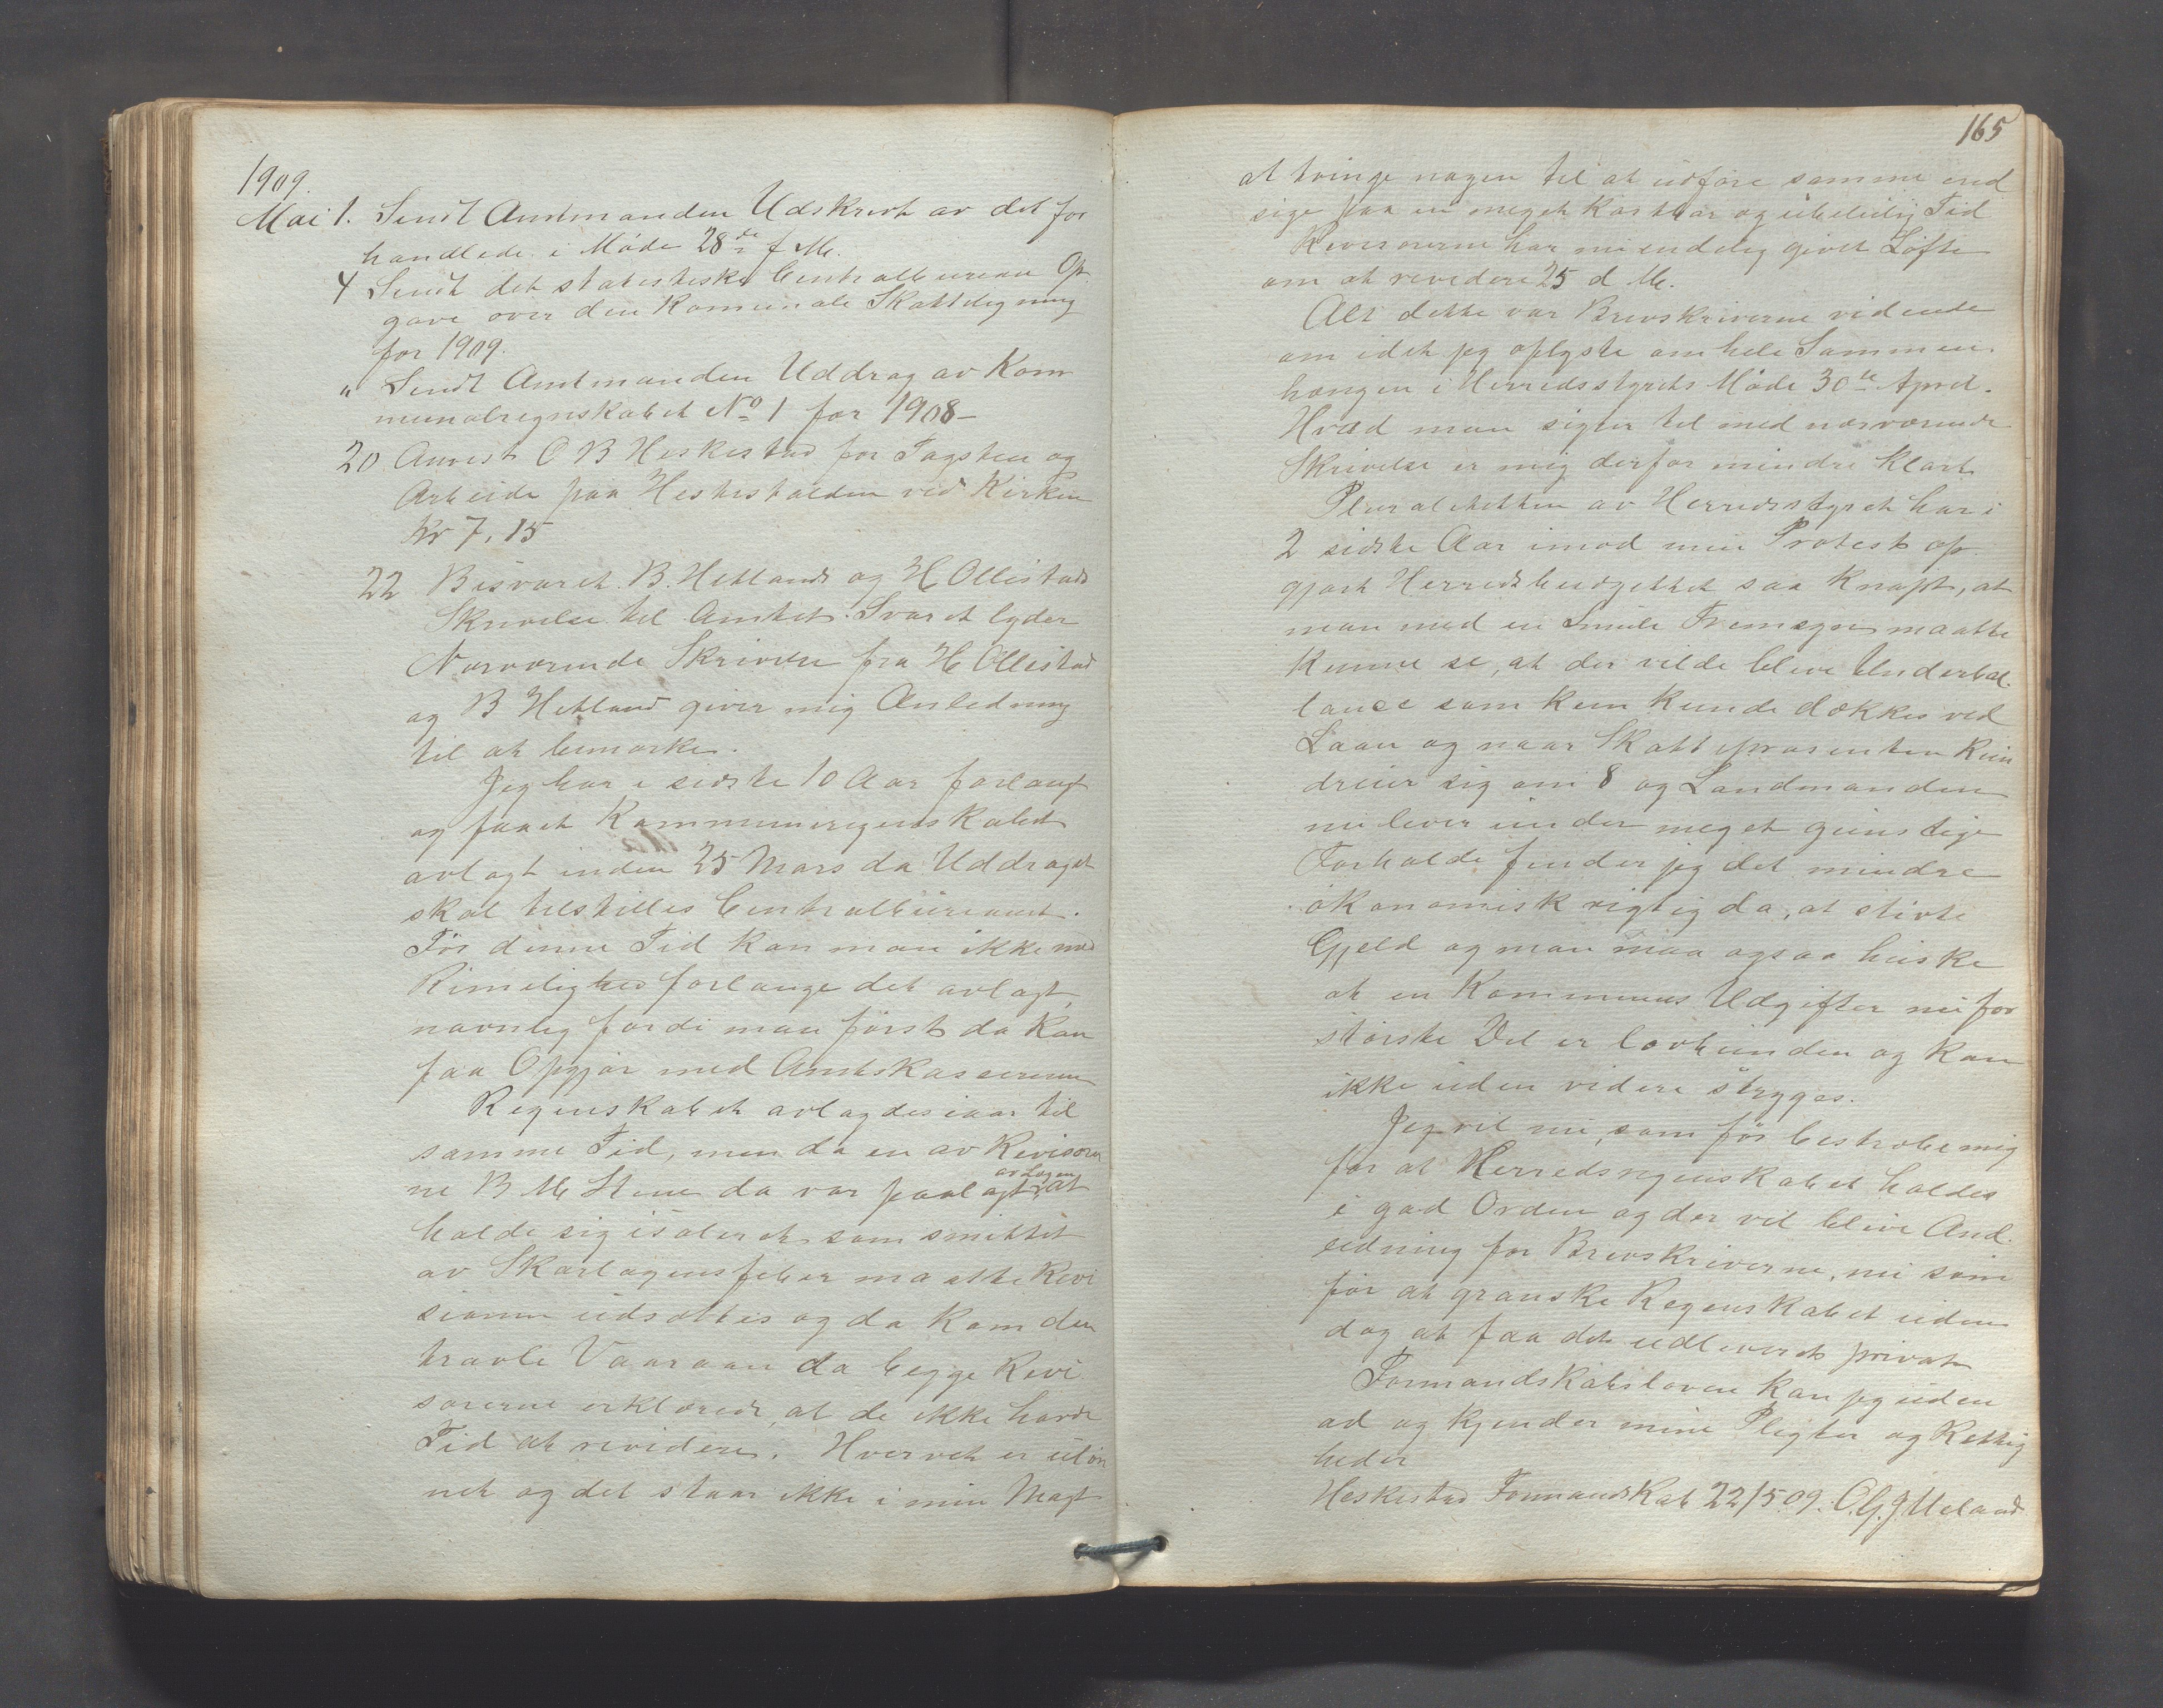 1909.
Mai 1. Sendt Amtmanden Udskrivt av det for
handlede i Møde 28de f M.
4 Sendt det statistiske Centralbureau Op
gave over den Komunale Skatteligning
for 1909.
" Sendt Amtmanden Uddrag av Kom
munalregnskabet No 1 for 1908 -
20 Anvist O B Heskestad for Tagsten og
Arbeide paa Hestestalden ved Kirken
Kr 7,15
22 Besvaret B. Hetlands og H Ollestads
Skrivelse til Amtet. Svaret lyder
Nærværende Skrivelse fra H Ollestad
og B Hetland giver mig Anledning
til at bemærke.
Jeg har i sidste 10 Aar forlangt
og faaet Kommuneregnskabet
avlagt inden 25 Mars da Uddraget
skal tilstilles Centralbureauet.
Før denne Tid kan man ikke med
Rimelighed forlange det avlagt,
navnlig fordi man først da kan
faa Opgjør med Amtskassereren
Regnskabet avlagdes iaar til
samme Tid, men da en av Revisorer
ne B M Stene da var paalagt av Lægen at
holde sig isoleret som smittet
av Skarlagensfeber maatte Revi
sionen udsættes og da kom den
travle Vaaraan da begge Revi
sorerne erklærede, at de ikke havde
Tid at revidere. Hvervet er uløn
net og det staar ikke i min Magt
165
at tvinge nogen til at udføre samme end
sige paa en meget kostbar og ubeleilig Tid
Revisorerne har nu endelig givet Løfte
om at revidere 25 d M.
Alt dette var Brevskriverne vidende
om idet jeg oplyste om hele Sammen
hængen i Herredsstyrets Møde 30te April.
Hvad man sigter til med nærværende
Skrivelse er mig derfor mindre klart
Pluraliteten av Herredsstyret har i
2 sidste Aar imod min Protest op
gjort Herredsbudgettet saa knapt, at
man med en Smule Fremsyn maatte
kunne se, at der vilde blive Underbal.
lance som kun kunde dækkes ved
Laan og naar Skatteprosenten kun
dreier sig om 8 og Landmanden
nu lever under meget gunstige
Forholde finder jeg det mindre
økonomisk rigtig da, at stivte
Gjeld og man maa ogsaa huske
at en Kommunes Udgifter nu for
største Del er lovbunden og kan
ikke uden videre stryges.
Jeg vil nu, som før bestræbe mig
for at Herredsregnskabet holdes
i god Orden og der vil blive And.
ledning for Brevskriverne, nu som
før at granske Regnskabet uden
dog at faa det udleveret privat
Formandskabsloven kan jeg uden
ad og kjender mine Pligter og Rettig
heder
Heskestad Formandskab 22/5 09. O.G.J Ueland